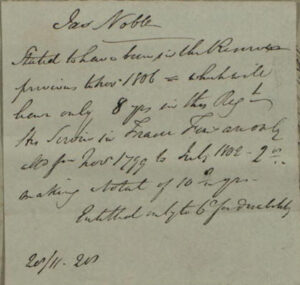 Jas Noble
Stated to have been in the Reserves
previous to Novr 1806 = which will
leave only 8 yrs in this Regt
His Service in Fraser Fen are only
fm Novr 1799 to July 1802 - 2
making total of 10 yrs -
Entitled only to 6d for disability